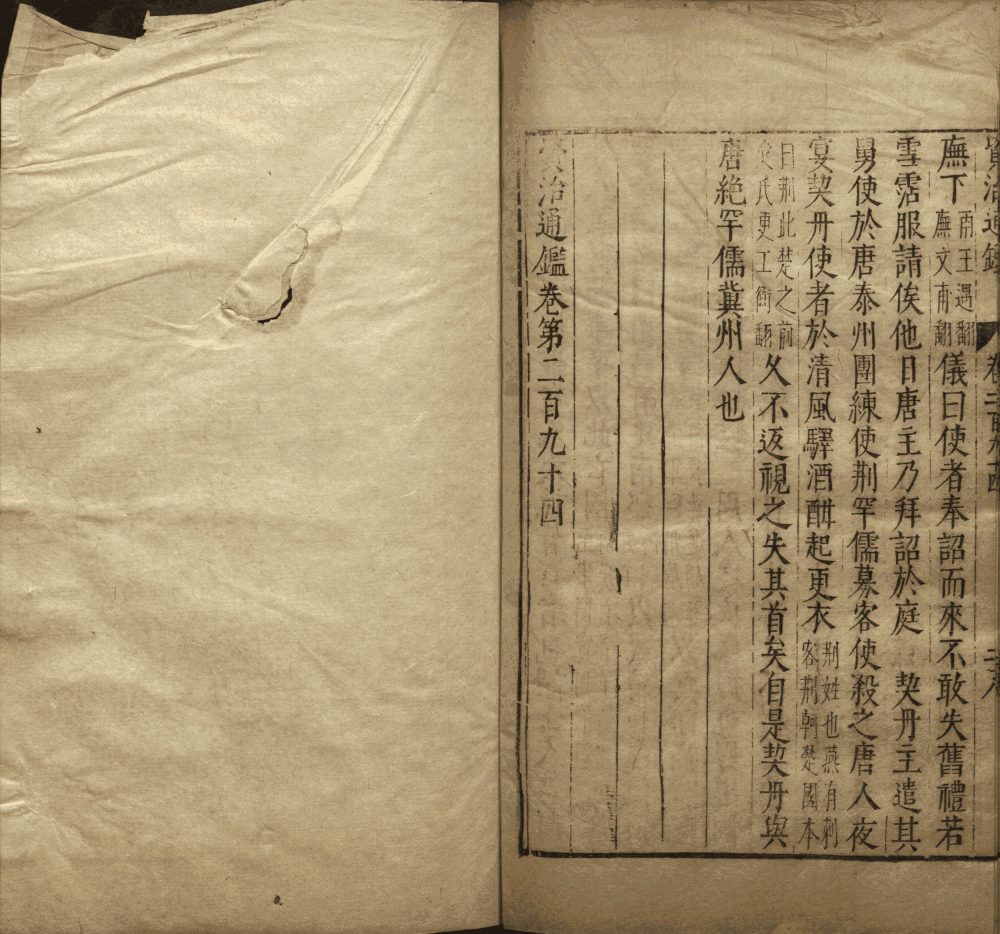 資治通鑑 卷二百九十四
廡下雨王遇翻廡文甫翻儀曰使者奉詔而來不敢失舊禮若
雪霑服請俟他日唐主乃拜詔於庭 契丹主遣其
舅使於唐泰州團練使荆罕儒募客使殺之唐人夜
宴契丹使者於清風驛酒酣起更衣荆姓也燕有刺客荆軻楚國本
曰荆此楚之前受氏更工衡翻久不返視之失其首矣自是契丹與
唐絶罕儒冀州人也
資治通鑑卷第二百九十四